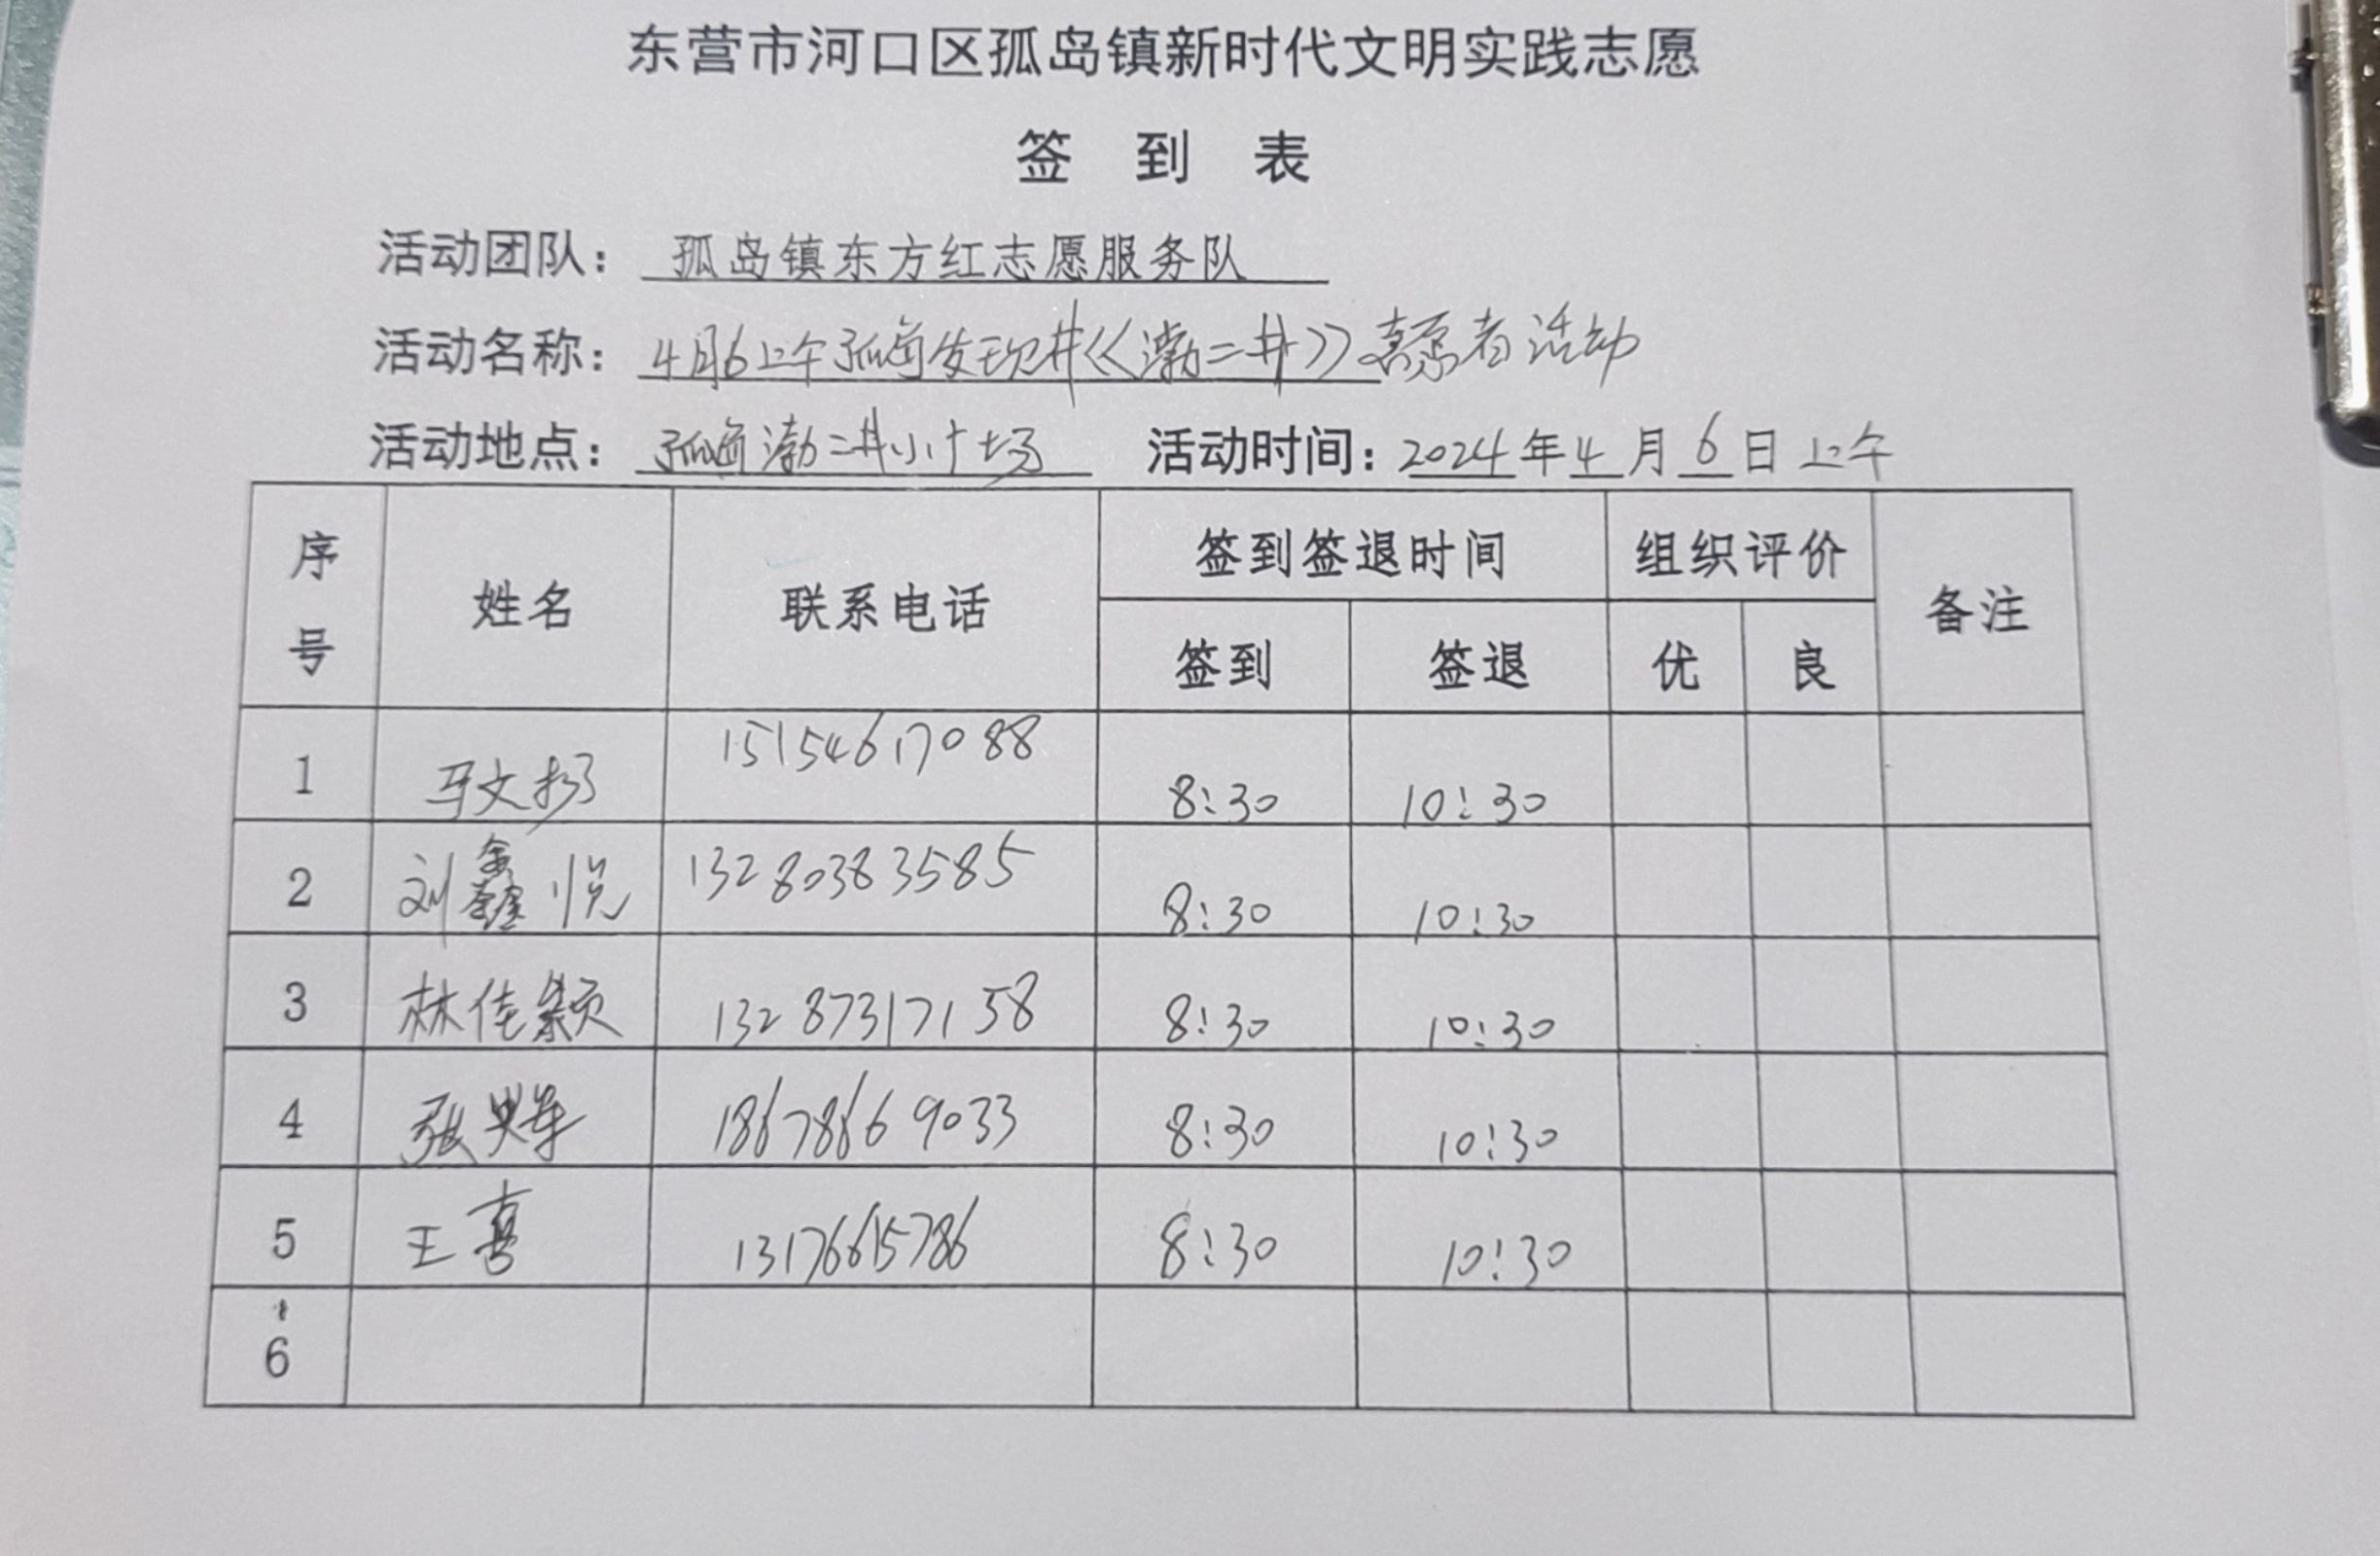 东营市河口区孤岛镇新时代文明实践志愿
签 到 表
活动团队： 孤岛镇东方红志愿服务队
活动名称： 4月6上午孤岛发现井《渤二井》志愿者活动
活动地点： 孤岛渤二井小广场 活动时间：2024年4月6日上午
序号 姓名 联系电话 签到签退时间 组织评价 备注
签到 签退 优 良
1 马文 15154617088 8:30 10:30
2 刘鑫悦 13280383585 8:30 10:30
3 林佳颖 13287317158 8:30 10:30
4 张 18678669033 8:30 10:30
5 王喜 13176615786 8:30 10:30
6